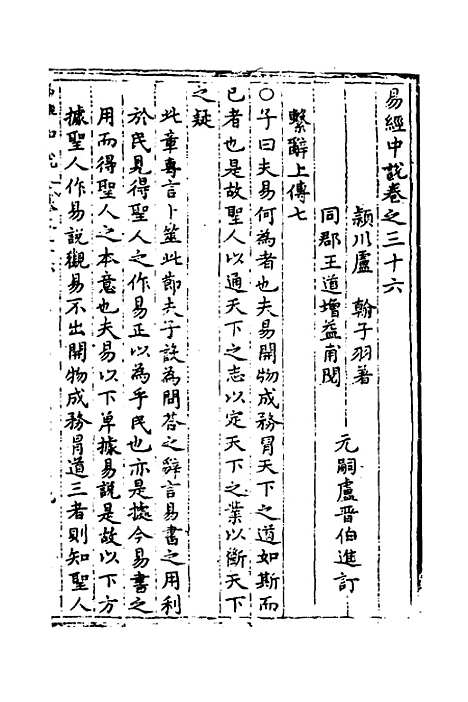 易經中說卷之三十六
潁川盧　翰子羽著
同郡王道增益甫閱
元嗣盧晋伯進訂
繫辭上傳七
○子曰夫易何為者也夫易開物成務冒天下之道如斯而
已者也是故聖人以通天下之志以定天下之業以斷天下
之疑
此章專言卜筮此節夫子設為問答之辭言易書之用利
於民見得聖人之作易正以為乎民也亦是據今易書之
用而得聖人之本意也夫易以下單據易說是故以下方
據聖人作易說觀易不出開物成務冒道三者則知聖人